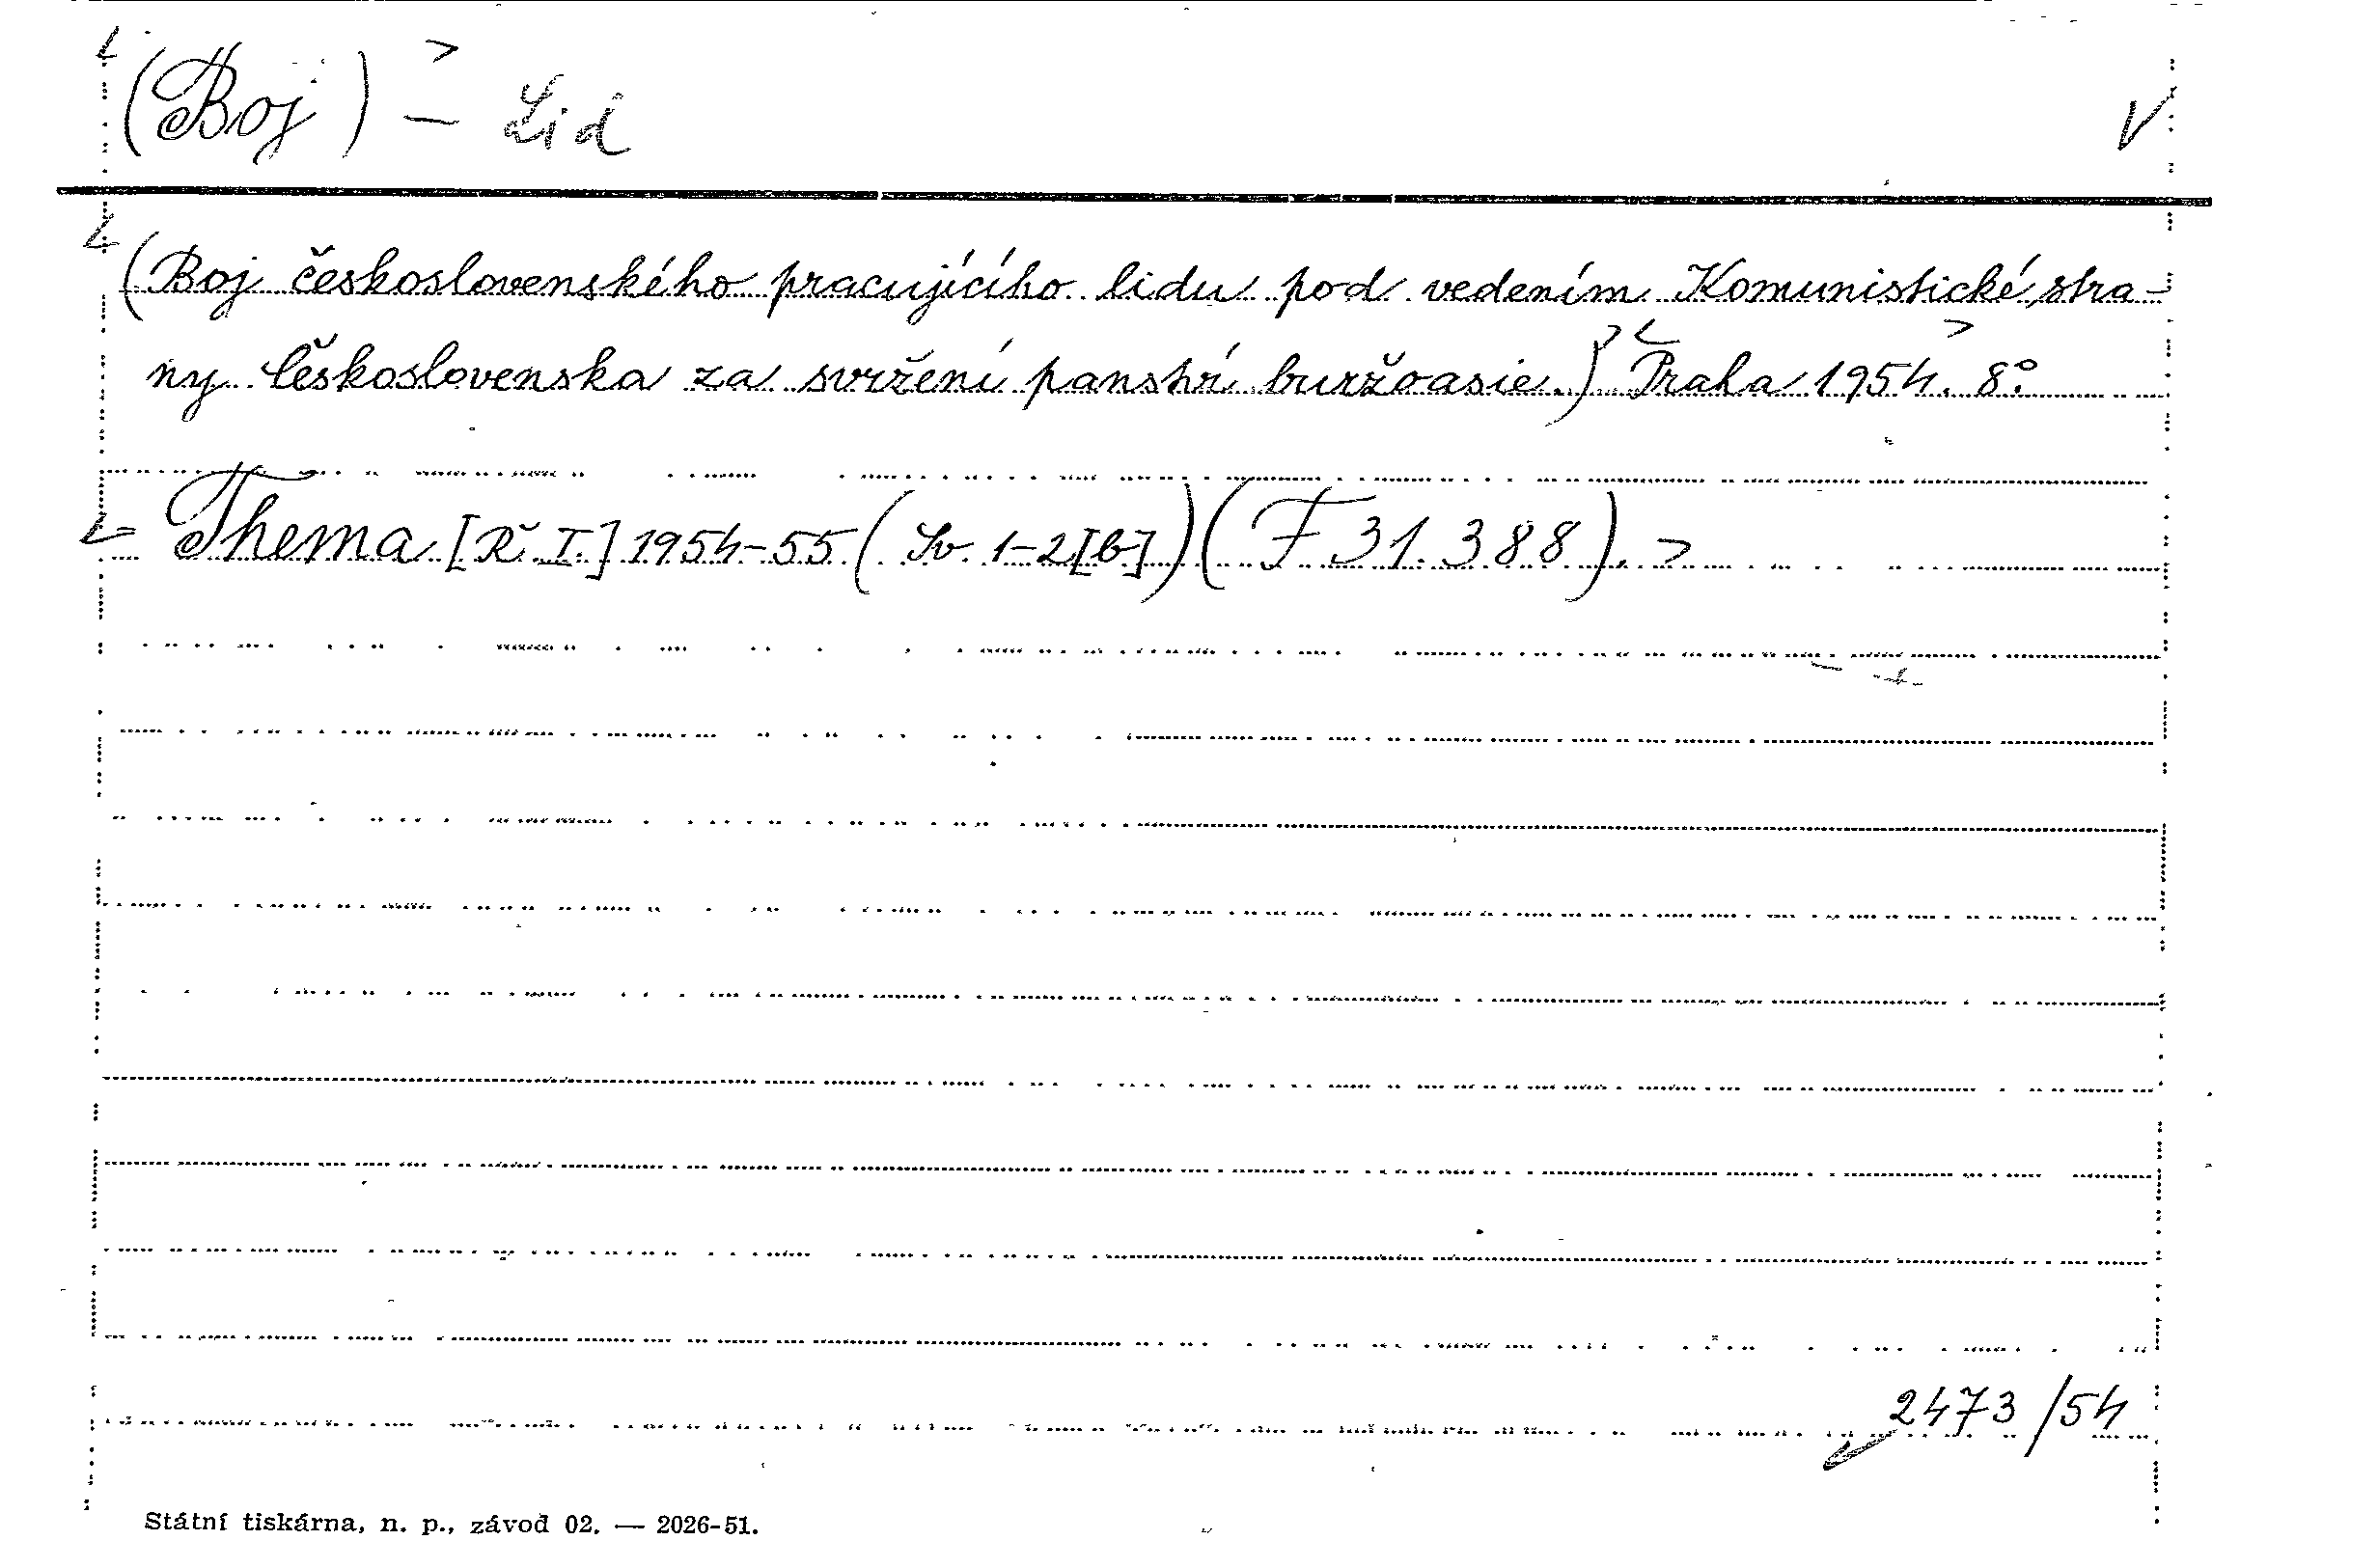 (Boj) – Lid
(Boj československého pracujícího lidu pod vedením Komunistické stra-
ny Československa za svržení panství buržoasie.) Praha 1954. 8°.
Thema [Ř. I.] 1954–55 (Sv. 1–2[b]) (F 31.388).
2473/54
Státní tiskárna, n. p., závod 02. — 2026-51.